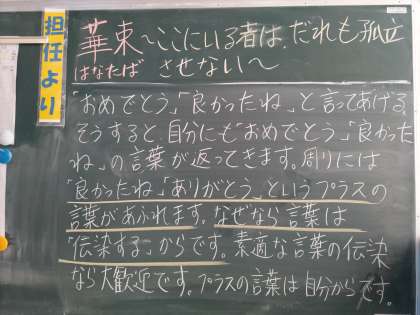 担任より
華束～ここにいる者は、だれも孤立
はなたば させない～
「おめでとう」「良かったね」と言ってあげる。
そうすると、自分にも「おめでとう」「良かった
ね」の言葉が返ってきます。周りには
「良かったね」「ありがとう」というプラスの
言葉があふれます。なぜなら言葉は
「伝染する」からです。素適な言葉の伝染
なら大歓迎です。プラスの言葉は自分からです。